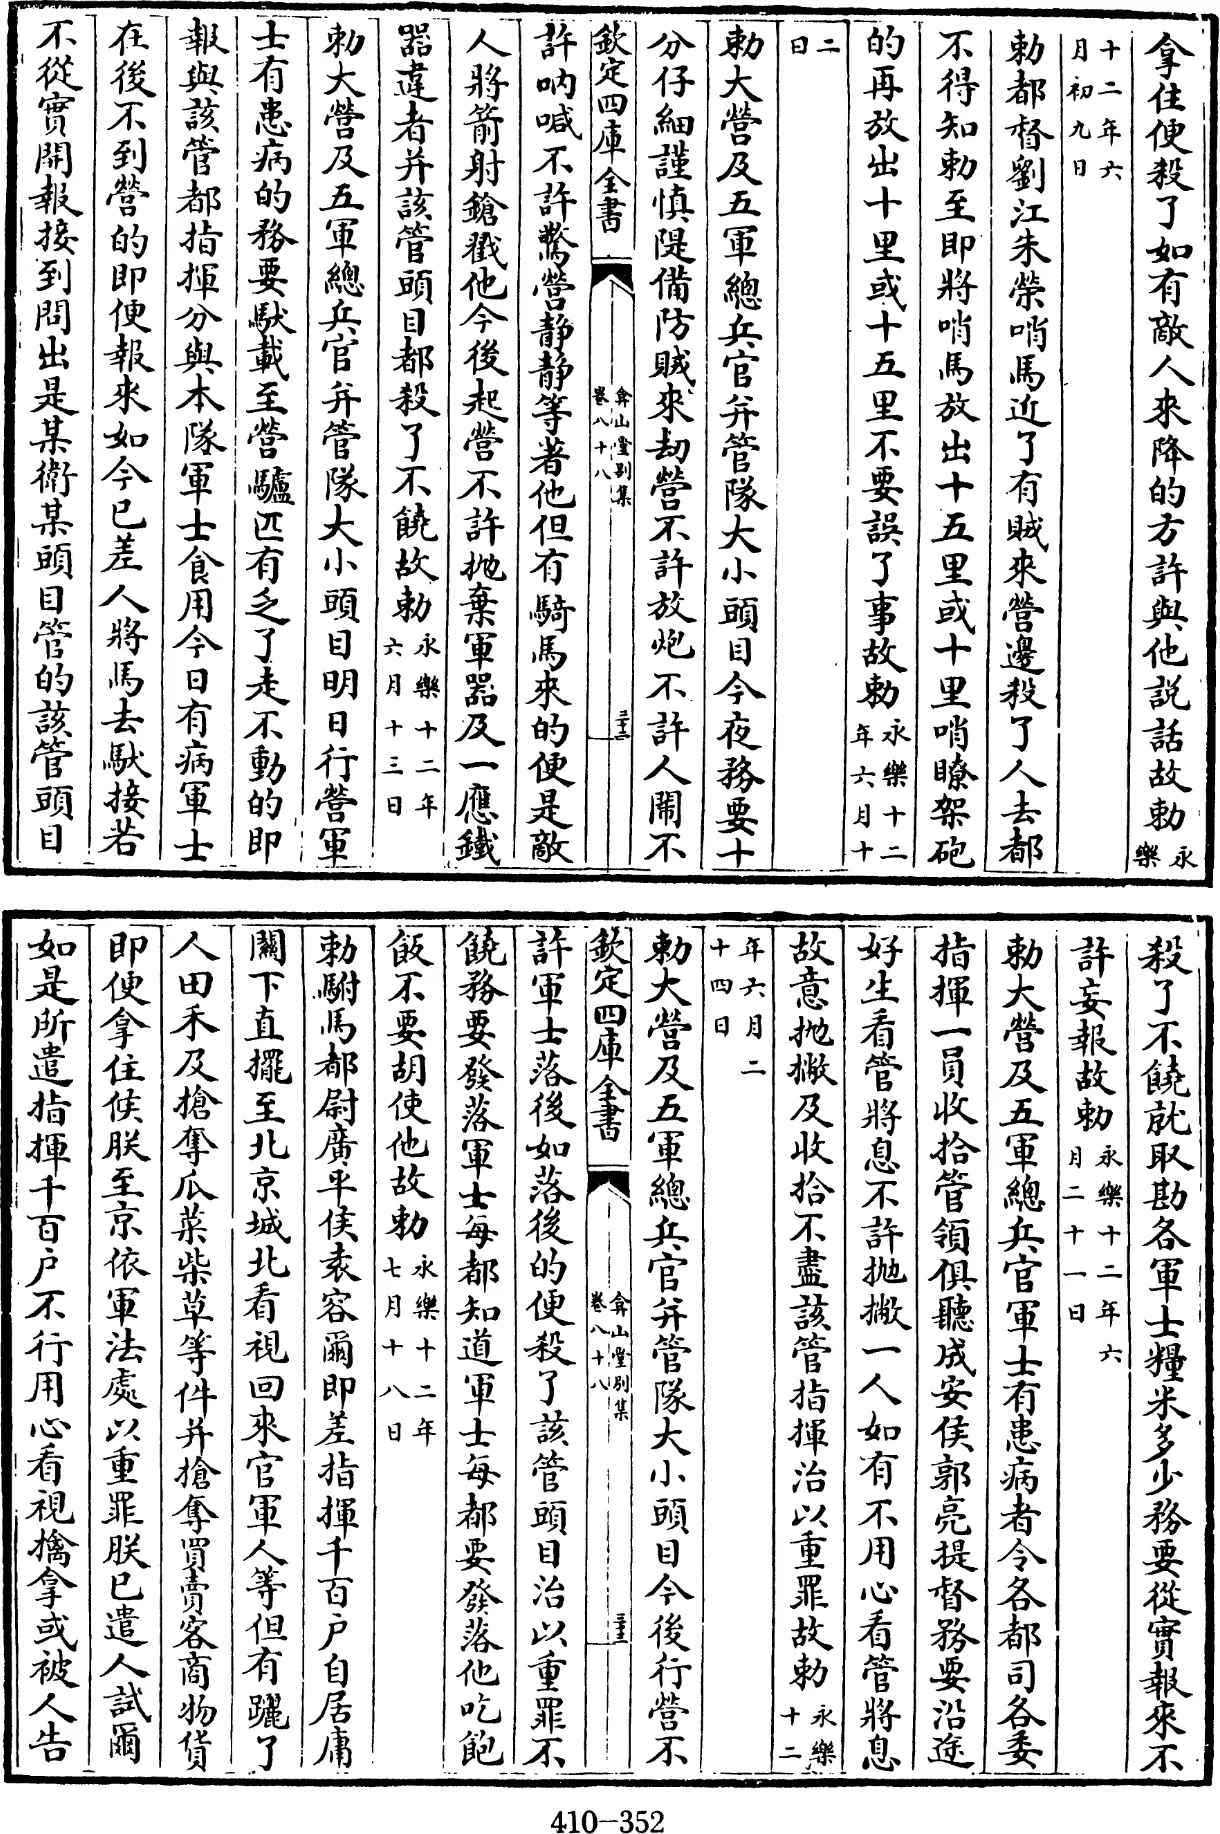 拿住便殺了如有敵人來降的方許與他說話故勅永樂
十二年六
月初九日
勅都督劉江朱榮哨馬近了有賊來營邊殺了人去都
不得知勅至即將哨馬放出十五里或十里哨瞭架砲
的再放出十里或十五里不要誤了事故勅永樂十二
年六月十
二日
勅大營及五軍總兵官并管隊大小頭目今夜務要十
分仔細謹慎隄備防賊來刼營不許放炮不許人鬧不
欽定四庫全書
弇山堂别集
卷八十八
三十二
許吶喊不許驚營静静等著他但有騎馬來的便是敵
人將箭射鎗戳他今後起營不許抛棄軍器及一應鐵
器違者并該管頭目都殺了不饒故勅永樂十二年
六月十三日
勅大營及五軍總兵官并管隊大小頭目明日行營軍
士有患病的務要馱載至營驢匹有乏了走不動的即
報與該管都指揮分與本隊軍士食用今日有病軍士
在後不到營的即便報來如今已差人將馬去馱接若
不從實開報接到問出是某衛某頭目管的該管頭目
殺了不饒就取勘各軍士糧米多少務要從實報來不
許妄報故勅永樂十二年六
月二十一日
勅大營及五軍總兵官軍士有患病者令各都司各委
指揮一員收拾管領俱聽成安侯郭亮提督務要沿途
好生看管將息不許抛撇一人如有不用心看管將息
故意抛撇及收拾不盡該管指揮治以重罪故勅永樂
十二
年六月二
十四日
勅大營及五軍總兵官并管隊大小頭目今後行營不
欽定四庫全書
弇山堂别集
卷八十八
三十三
許軍士落後如落後的便殺了該管頭目治以重罪不
饒務要發落軍士每都知道軍士每都要發落他吃飽
飯不要胡使他故勅永樂十二年
七月十八日
勅駙馬都尉廣平侯袁容爾即差指揮千百户自居庸
關下直擺至北京城北看視回來官軍人等但有躧了
人田禾及搶奪瓜菜柴草等件并搶奪買賣客商物貨
即便拿住俟朕至京依軍法處以重罪朕已遣人試爾
如是所遣指揮千百户不行用心看視擒拿或被人告
410-352